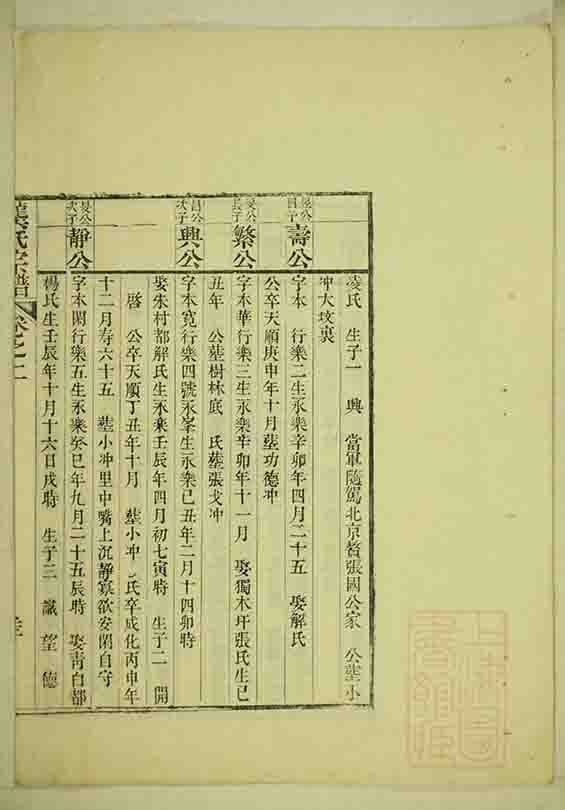 凌氏　生子一　興　當軍隨駕北京贅張國公家　公塟小
冲大坟裏
晟公
壽公
字本　行樂二生永樂辛卯年四月二十五　娶解氏
公卒天順庚申年十月塟功德冲
旻公
長子
繁公
字本華行樂三生永樂辛卯年十一月　娶獨木圩張氏生己
丑年　公塟樹林底　氏塟張戈冲
昌公
次子
興公
字本寬行樂四號永峯生永樂己丑年二月十四卯時
娶朱村都解氏生永樂壬辰年四月初七寅時　生子二　開
啓　公卒天順丁丑年十月　塟小冲　氏卒成化丙申年
十二月寿六十五　塟小冲里中嘴上沉靜寡欲安閑自守
旻公
次子
靜公
字本閑行樂五生永樂癸巳年九月二十五辰時　娶靑白都
楊氏生壬辰年十月十六日戌時　生子三　讖　望　德
氏宗譜
卷之二